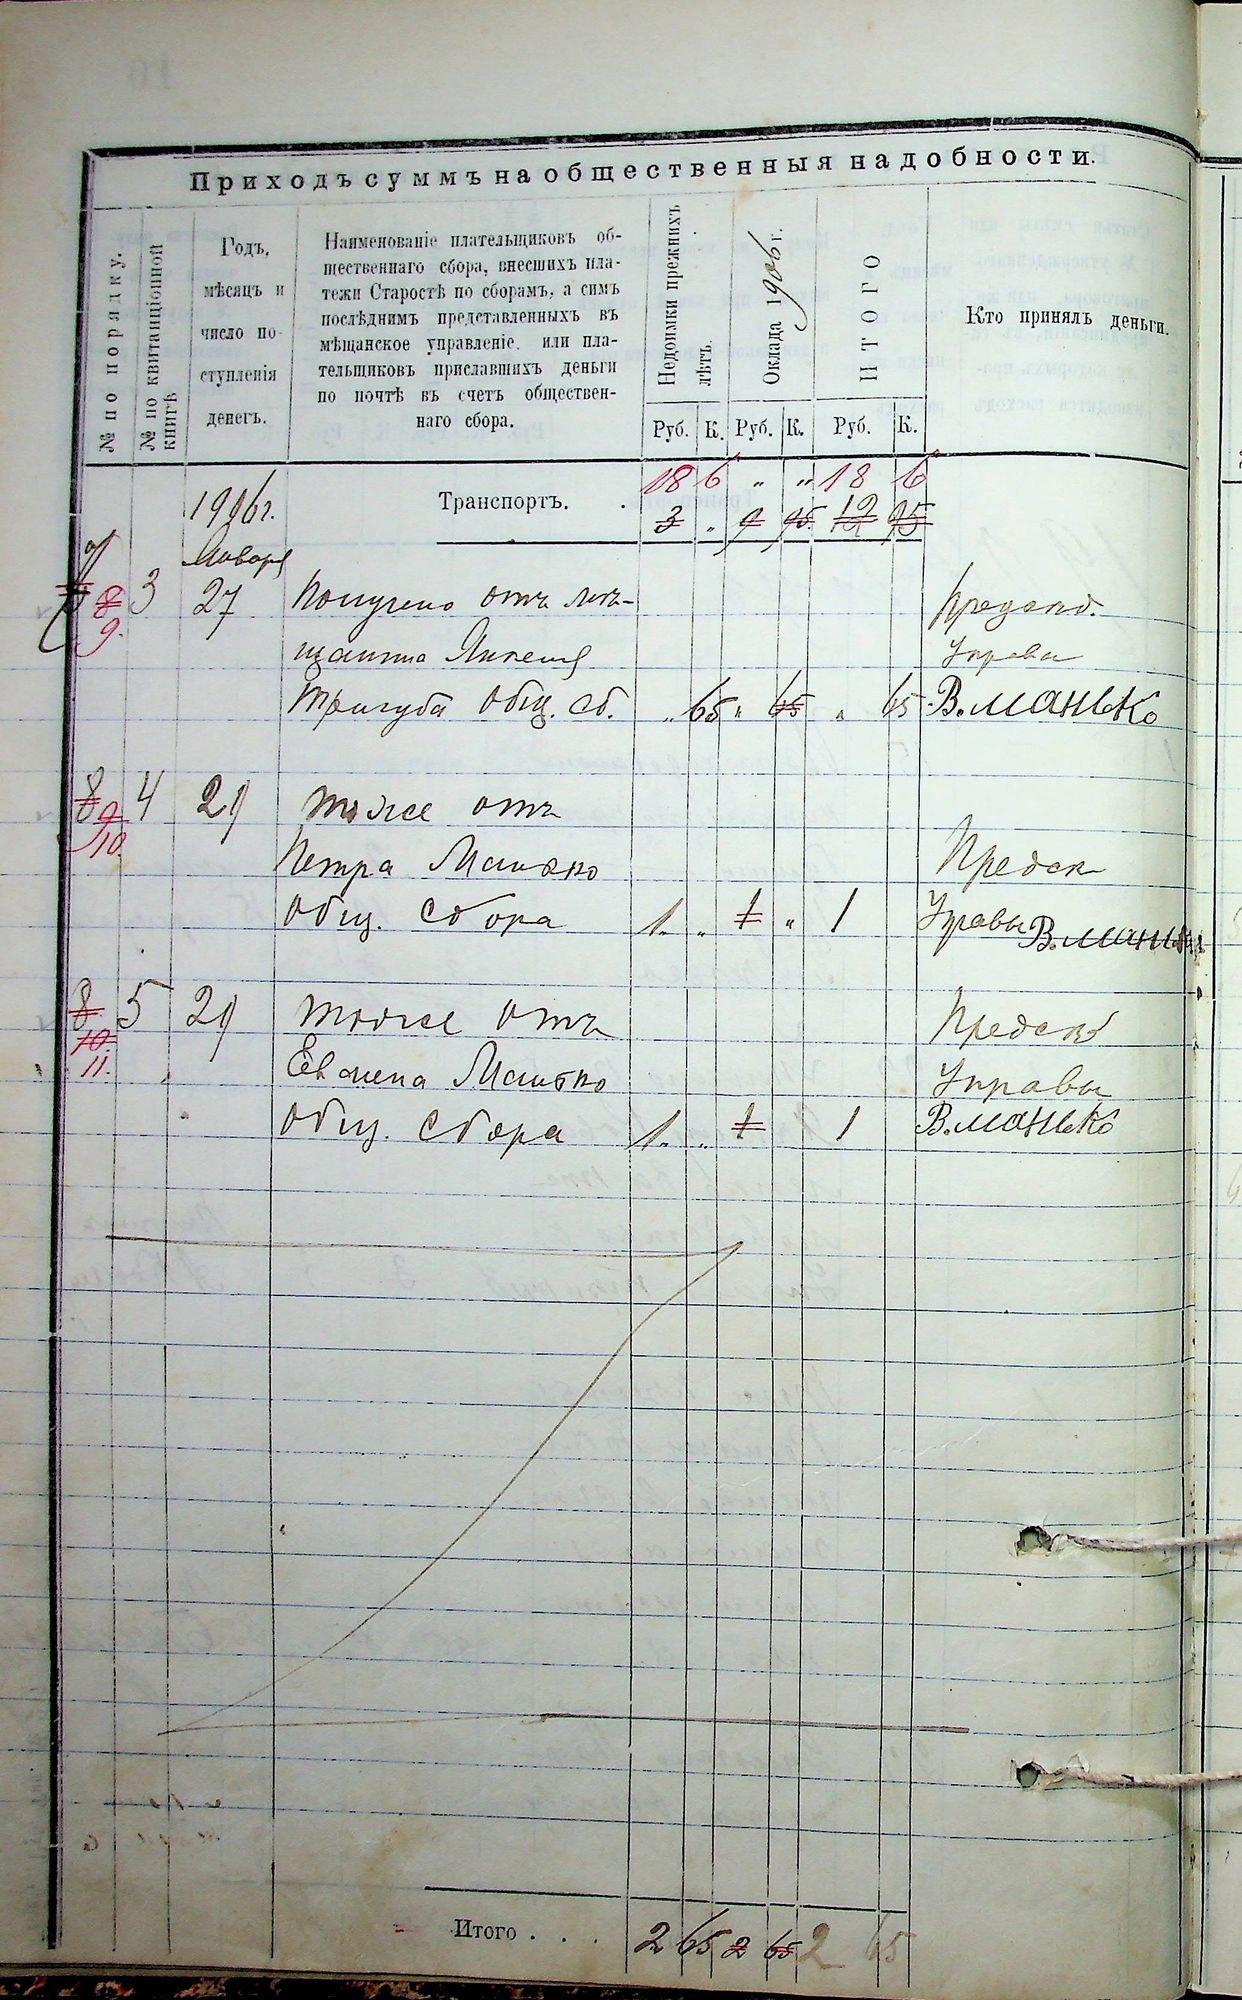 Приходъ суммъ на общественныя надобности.
№ по порядку.
№ по квитанціонной
книгѣ
Годъ,
мѣсяцъ и
число по-
ступленія
денегъ.
Наименованіе плательщиковъ об-
щественнаго сбора, внесшихъ пла-
тежи Старостѣ по сборамъ, а симъ
послѣднимъ представленныхъ въ
мѣщанское управленіе, или пла-
тельщиковъ приславшихъ деньги
по почтѣ въ счетъ обществен-
наго сбора.
Недоимки прежнихъ
лѣтъ.
Оклада 1906 г.
ИТОГО
Кто принялъ деньги.
Руб. К. Руб. К. Руб. К.
18 6 „ „ 18 6
1906 г. Транспортъ. 3 „ 9 95 12 95
Января
7 8 3 27 Получено отъ мѣ- Предсѣд.
9. щанина Управы
Тригуба Общ. сб. „ 65 „ 65 „ 65 В. Манько
8 9 4 29 тоже отъ
10. Петра Манько Предсѣ
Общ. Сбора 1 „ 1 „ 1 Управы В. Манько
8 5 29 тоже отъ Предсѣ
10 11. Манько Управы
Общ. Сбора 1 „ 1 1 В. Манько
Итого . . . 2 65 2 65 2 65